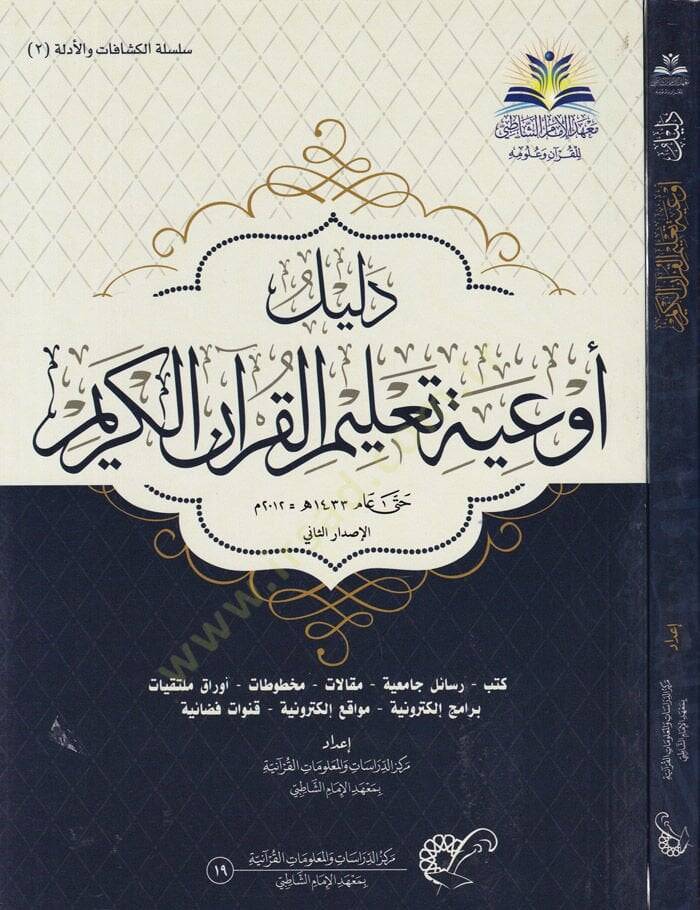 سلسلة الكشافات والأدلة (٢)
معهد الإمام الشاطبي
للقرآن وعلومه
دليل
أوعية تعليم القرآن الكريم
حَتَّى ١ عام ١٤٣٣هـ = ٢٠١٢م
الإصدار الثاني
كتب - رسائل جامعية - مقالات - مخطوطات - أوراق ملتقيات
برامج إلكترونية - مواقع إلكترونية - قنوات فضائية
إعداد
مركز الدراسات والمعلومات القرآنية
بمعهد الإمام الشاطبي
مركز الدراسات والمعلومات القرآنية
بمعهد الإمام الشاطبي
١٩
معهد الإمام الشاطبي
للقرآن وعلومه
دليل
أوعية تعليم القرآن الكريم
إعداد
مركز الدراسات والمعلومات القرآنية
بمعهد الإمام الشاطبي